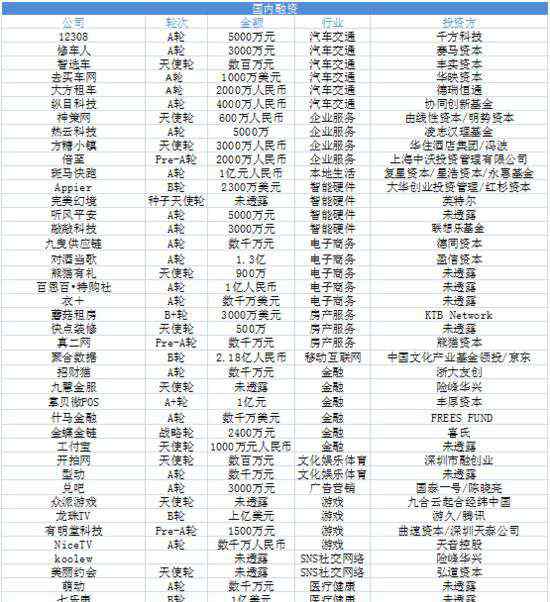 国内融资
公司 轮次 金额 行业 投资方
12308 A轮 5000万元 汽车交通 千方科技
修车人 A轮 3000万元 汽车交通 赛马资本
智选车 天使轮 数百万元 汽车交通 丰实资本
去买车网 A轮 1000万美元 汽车交通 华映资本
大方租车 A轮 2000万人民币 汽车交通 德瑞恒通
纵目科技 A轮 4000万人民币 汽车交通 协同创新基金
神策网 天使轮 600万人民币 企业服务 曲线性资本/明势资本
热云科技 A轮 5000万 企业服务 凌志汉理基金
方糖小镇 天使轮 3000万人民币 企业服务 华住酒店集团/冯波
倍至 Pre-A轮 2000万人民币 企业服务 上海中沃投资管理有限公司
斑马快跑 A轮 1亿元人民币 本地生活 复星资本/星浩资本/永嘉基金
Appier B轮 2300万美元 智能硬件 大华创业投资管理/红杉资本
完美幻境 种子天使轮 未透露 智能硬件 英特尔
听风平安 A轮 5000万元 智能硬件 未透露
敲敲科技 A轮 3000万元 智能硬件 联想乐基金
九曳供应链 A轮 数千万元 电子商务 德同资本
对酒当歌 A轮 1.3亿 电子商务 盈信资本
熊猫有礼 天使轮 900万 电子商务 未透露
百思百·特购社 A轮 1亿人民币 电子商务 未透露
衣+ A轮 数千万美元 电子商务 未透露
蘑菇租房 B+轮 3000万美元 房产服务 KTB Network
快点装修 天使轮 500万 房产服务 未透露
真二网 Pre-A轮 数千万 房产服务 熊猫资本
聚合数据 B轮 2.18亿人民币 移动互联网 中国文化产业基金领投/京东
招财猫 A轮 数千万元 金融 浙大友创
九慧金服 天使轮 未透露 金融 险峰华兴
拿贝微POS A+轮 1亿元 金融 丰厚资本
什马金融 A轮 数千万美元 金融 FREES FUND
金蝶金链 战略轮 2400万元 金融 喜氏
工付宝 天使轮 1000万元人民币 金融 未透露
开拍网 天使轮 数百万元 文化娱乐体育 深圳市融创业
型动 A轮 数千万元 文化娱乐体育 未透露
兑吧 A轮 3000万元 广告营销 国泰一号/陈晓亮
众派游戏 天使轮 未透露 游戏 九合云起合经纬中国
龙珠TV B轮 上亿美元 游戏 游久/腾讯
有明堂科技 Pre-A轮 1500万元 游戏 曲速资本/深圳天泰公司
NiceTV A轮 数千万人民币 游戏 天音控股
koolew 未透露 SNS社交网络 险峰华兴
美丽约会 天使轮 未透露 SNS社交网络 弘道资本
萌动 A轮 数千万元 医疗健康 未透露
七乐康 B轮 1亿美元 医疗健康 未透露